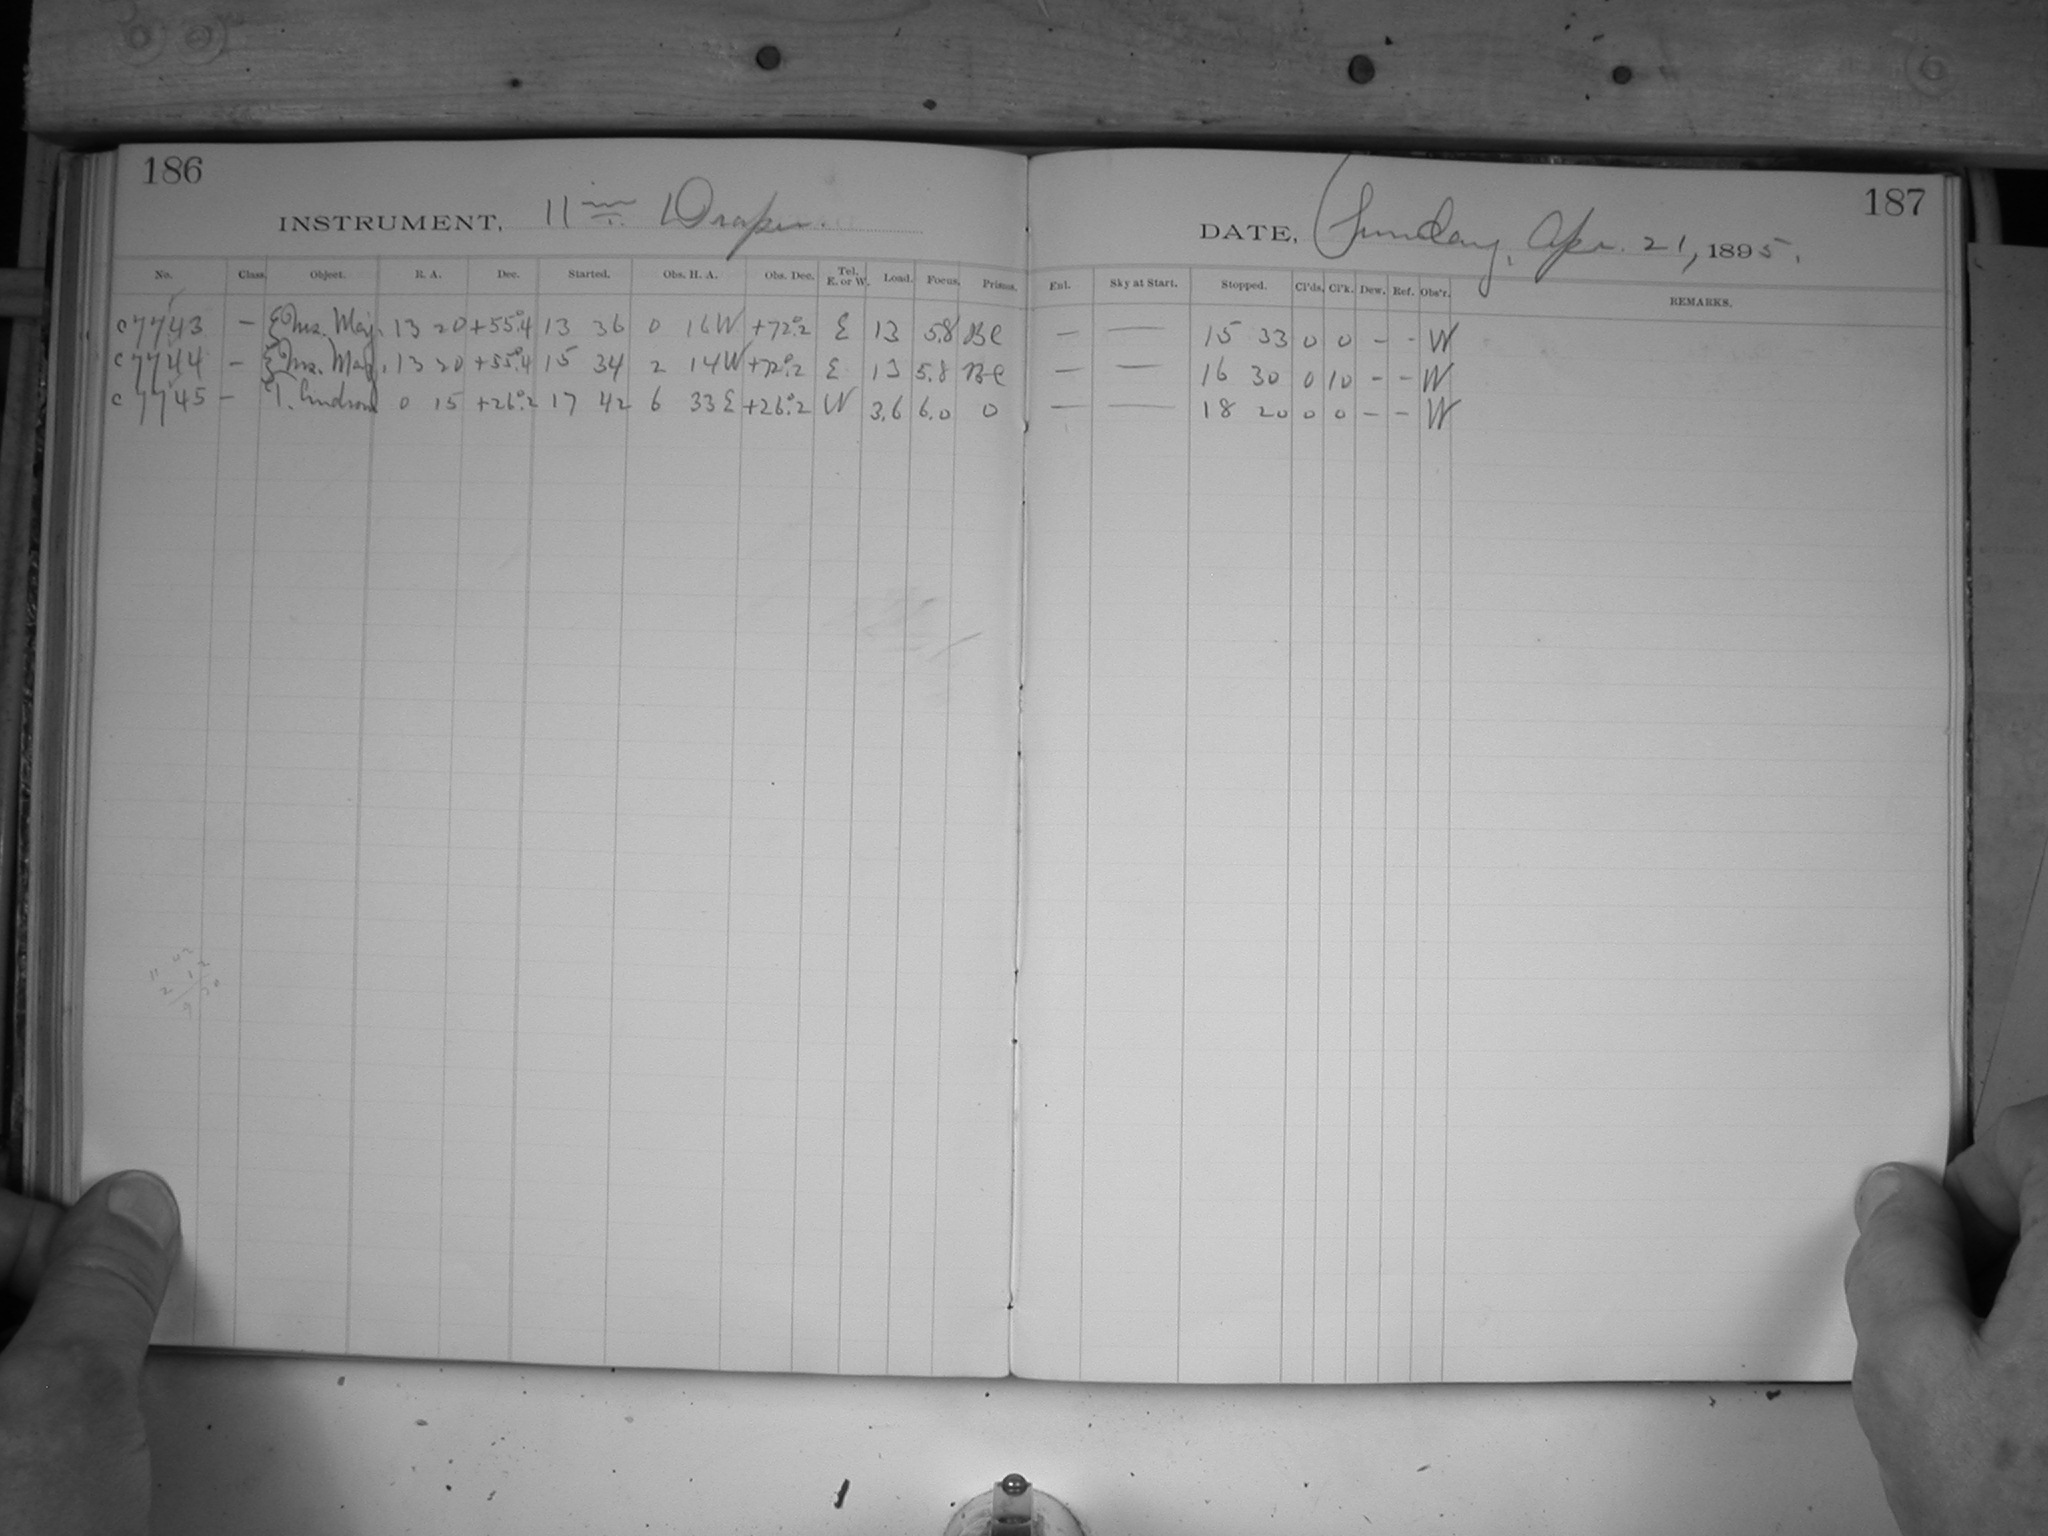 186
INSTRUMENT, 11 in. Draper.
No. Class. Object. R. A. Dec. Started. Obs. H. A. Obs. Dec. Tel. E. or W. Load. Focus. Prisms.
c7743 — ζ Urs. Maj. 13 20 +55°.4 13 36 0 16W +72°.2 E 13 5.8 BC
c7744 — ζ Urs. Maj. 13 20 +55°.4 15 34 2 14W +72°.2 E 13 5.8 BC
c7745 — T. Androm 0 15 +26°.2 17 42 6 33E +26°.2 W 3.6 6.0 0
187
DATE, Sunday, Apr. 21, 1895.
Enl. Sky at Start. Stopped. Cl'ds. Cl'k. Dew. Ref. Obs'r. REMARKS.
— — 15 33 0 0 - - W
— — 16 30 0 10 - - W
— — 18 20 0 0 - - W